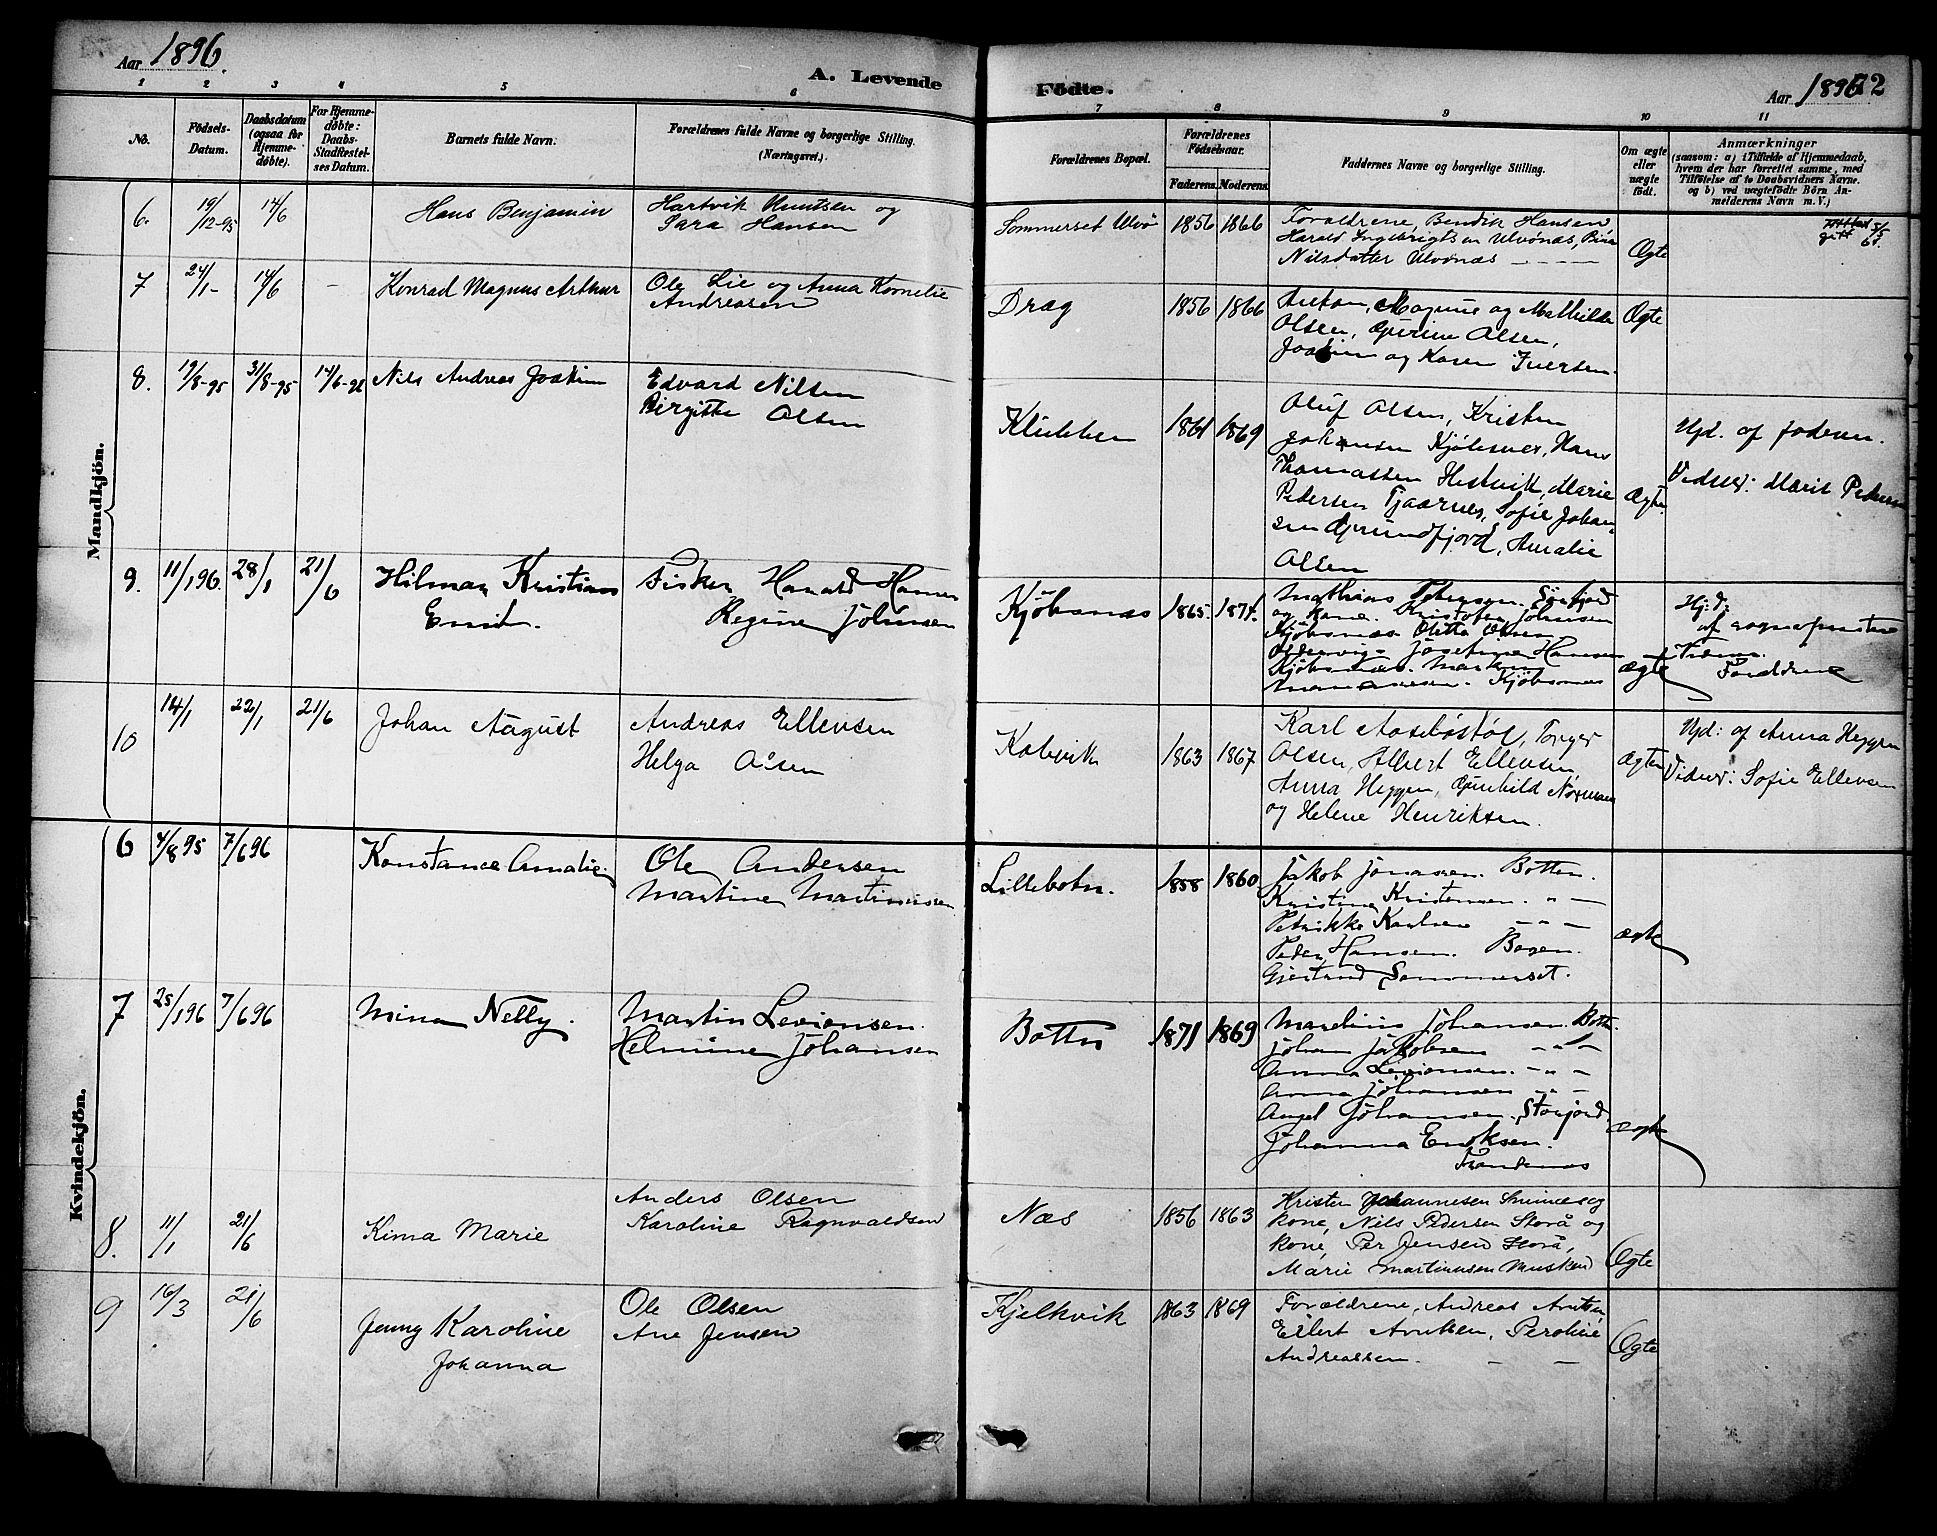 Aar 1896.
A. Levende
Födte.
Aar 1896
12
1 2 3 4 5 6 7 8 9 10 11
No.
Födsels-
Datum.
Daabsdatum
(ogsaa for
Hjemme-
døbte).
For Hjemme-
døbte:
Daabs-
Stadfæstel-
ses Datum.
Barnets fulde Navn.
Forældrenes fulde Navne og borgerlige Stilling.
(Næringsvei.)
Forældrenes Bopæl.
Forældrenes
Fødselsaar.
Faderens. Moderens.
Faddernes Navne og borgerlige Stilling.
Om ægte
eller
uægte
født.
Anmærkninger
(saasom: a) i Tilfælde af Hjemmedaab,
hvem der har forrettet samme, med
Tilføielse af to Daabsvidners Navne.
og b) ved uægtefødte Börn An-
melderens Navn m. V.)
Mandkjön.
6. 19/12-95 14/6 Hans Benjamin
Hartvik Knutsen og
Sara Hansen
Sommerset Ulvö 1856 1866
Forældrene, Bendik Hansen
Harald Ingebrigtsen Ulvönæs,
Nilsdatter Ulvönæs
Ægte
7 24/1- 14/6 - Konrad Magnus Arthur
Ole Lie og Anna Kornelie
Andreasen
Drag 1856 1866
Anton, Magnus og Mathilde
Olsen, Gurine Olsen,
Joakim og Karen Iversen.
Ægte
8. 19/8-95 31/8-95 14/6-96 Nils Andreas Joakim
Edvard Nilsen
Birgitte Olsen
Klubben 1861 1869
Oluf Olsen, Kristen
Johansen Kjöbsnes, Hans
Thomassen Hestvik, Marie
Pedersen Tjaarnes, Sofie Johan-
sen Grundfjord, Amalie
Olsen
Ægte
Hjd. af faderen.
Vidner: Marit Pedersen
9. 11/1 96. 28/1 21/6 Hilmar Kristians
Emil.
Fisker Harald Hansen
Regine Johnsen
Kjöbsnæs 1865. 1874.
Mathias Petersen. Sörfjord
og kone. Kristofer Johnsen
Kjöbsnæs. Olette Olsen
Josefine Hansen
Kjöbsnæs.
Kjöbsnæs
ægte
Hj.d.
af sognepresten
Forældrene
10 14/1 22/1 21/6 Johan August
Andreas Ellevsen
Helga Olsen
Kobvik 1863 1867
Karl Aasebøstøl, Torger
Olsen, Albert Ellevsen
Anna Heggen, Gunhild Normann
og Helene Henriksen.
Ægte
Hjd: af Anna Heggen
Vidner: Sofie Ellevsen
Kvindekjön.
6 4/8 95 7/6 96 Konstance Amalie.
Ole Andersen
Martine Martinussen
Lillebotn. 1858 1860
Jakob Jonassen. Botten.
Kristine Kristensen. - " -
Petrikke Karlsen - " -
Peder Hansen. Bogen.
Gjertrud Sommerset.
ægte
7 25/1 96 7/6 96 Mina Nelly.
Martin Levionsen.
Helmine Johansen
Botten 1871 1869
Marelius Johansen. Bott.
Johan Jakobsen - " -
Anna Levionsen. - " -
Anna Johansen - " -
Angel Johansen. Storjord.
Johanna Enoksen.
Trandenæs
ægte
8. 11/1 21/6 Kima Marie
Anders Olsen
Karoline Ragnvaldsen
Næs 1856 1863
Kristen Johannesen og
kone, Nils Pedersen Storå og
kone, Per Jensen Storå,
Marie Martinusen Musken
Ægte
9 16/3 21/6 Jenny Karoline
Johanna
Ole Olsen
Ane Jensen
Kjelkvik 1863 1869
Forældrene, Andreas Arntsen,
Eilert Arntsen, Peroline
Andreassen. - -
Ægte